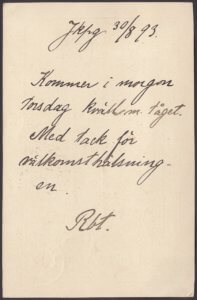 Jkpg 30/8 93.
Kommer i morgon
torsdag kväll m. tåget.
Med tack för
välkomsthälsning-
en.
Rbt.